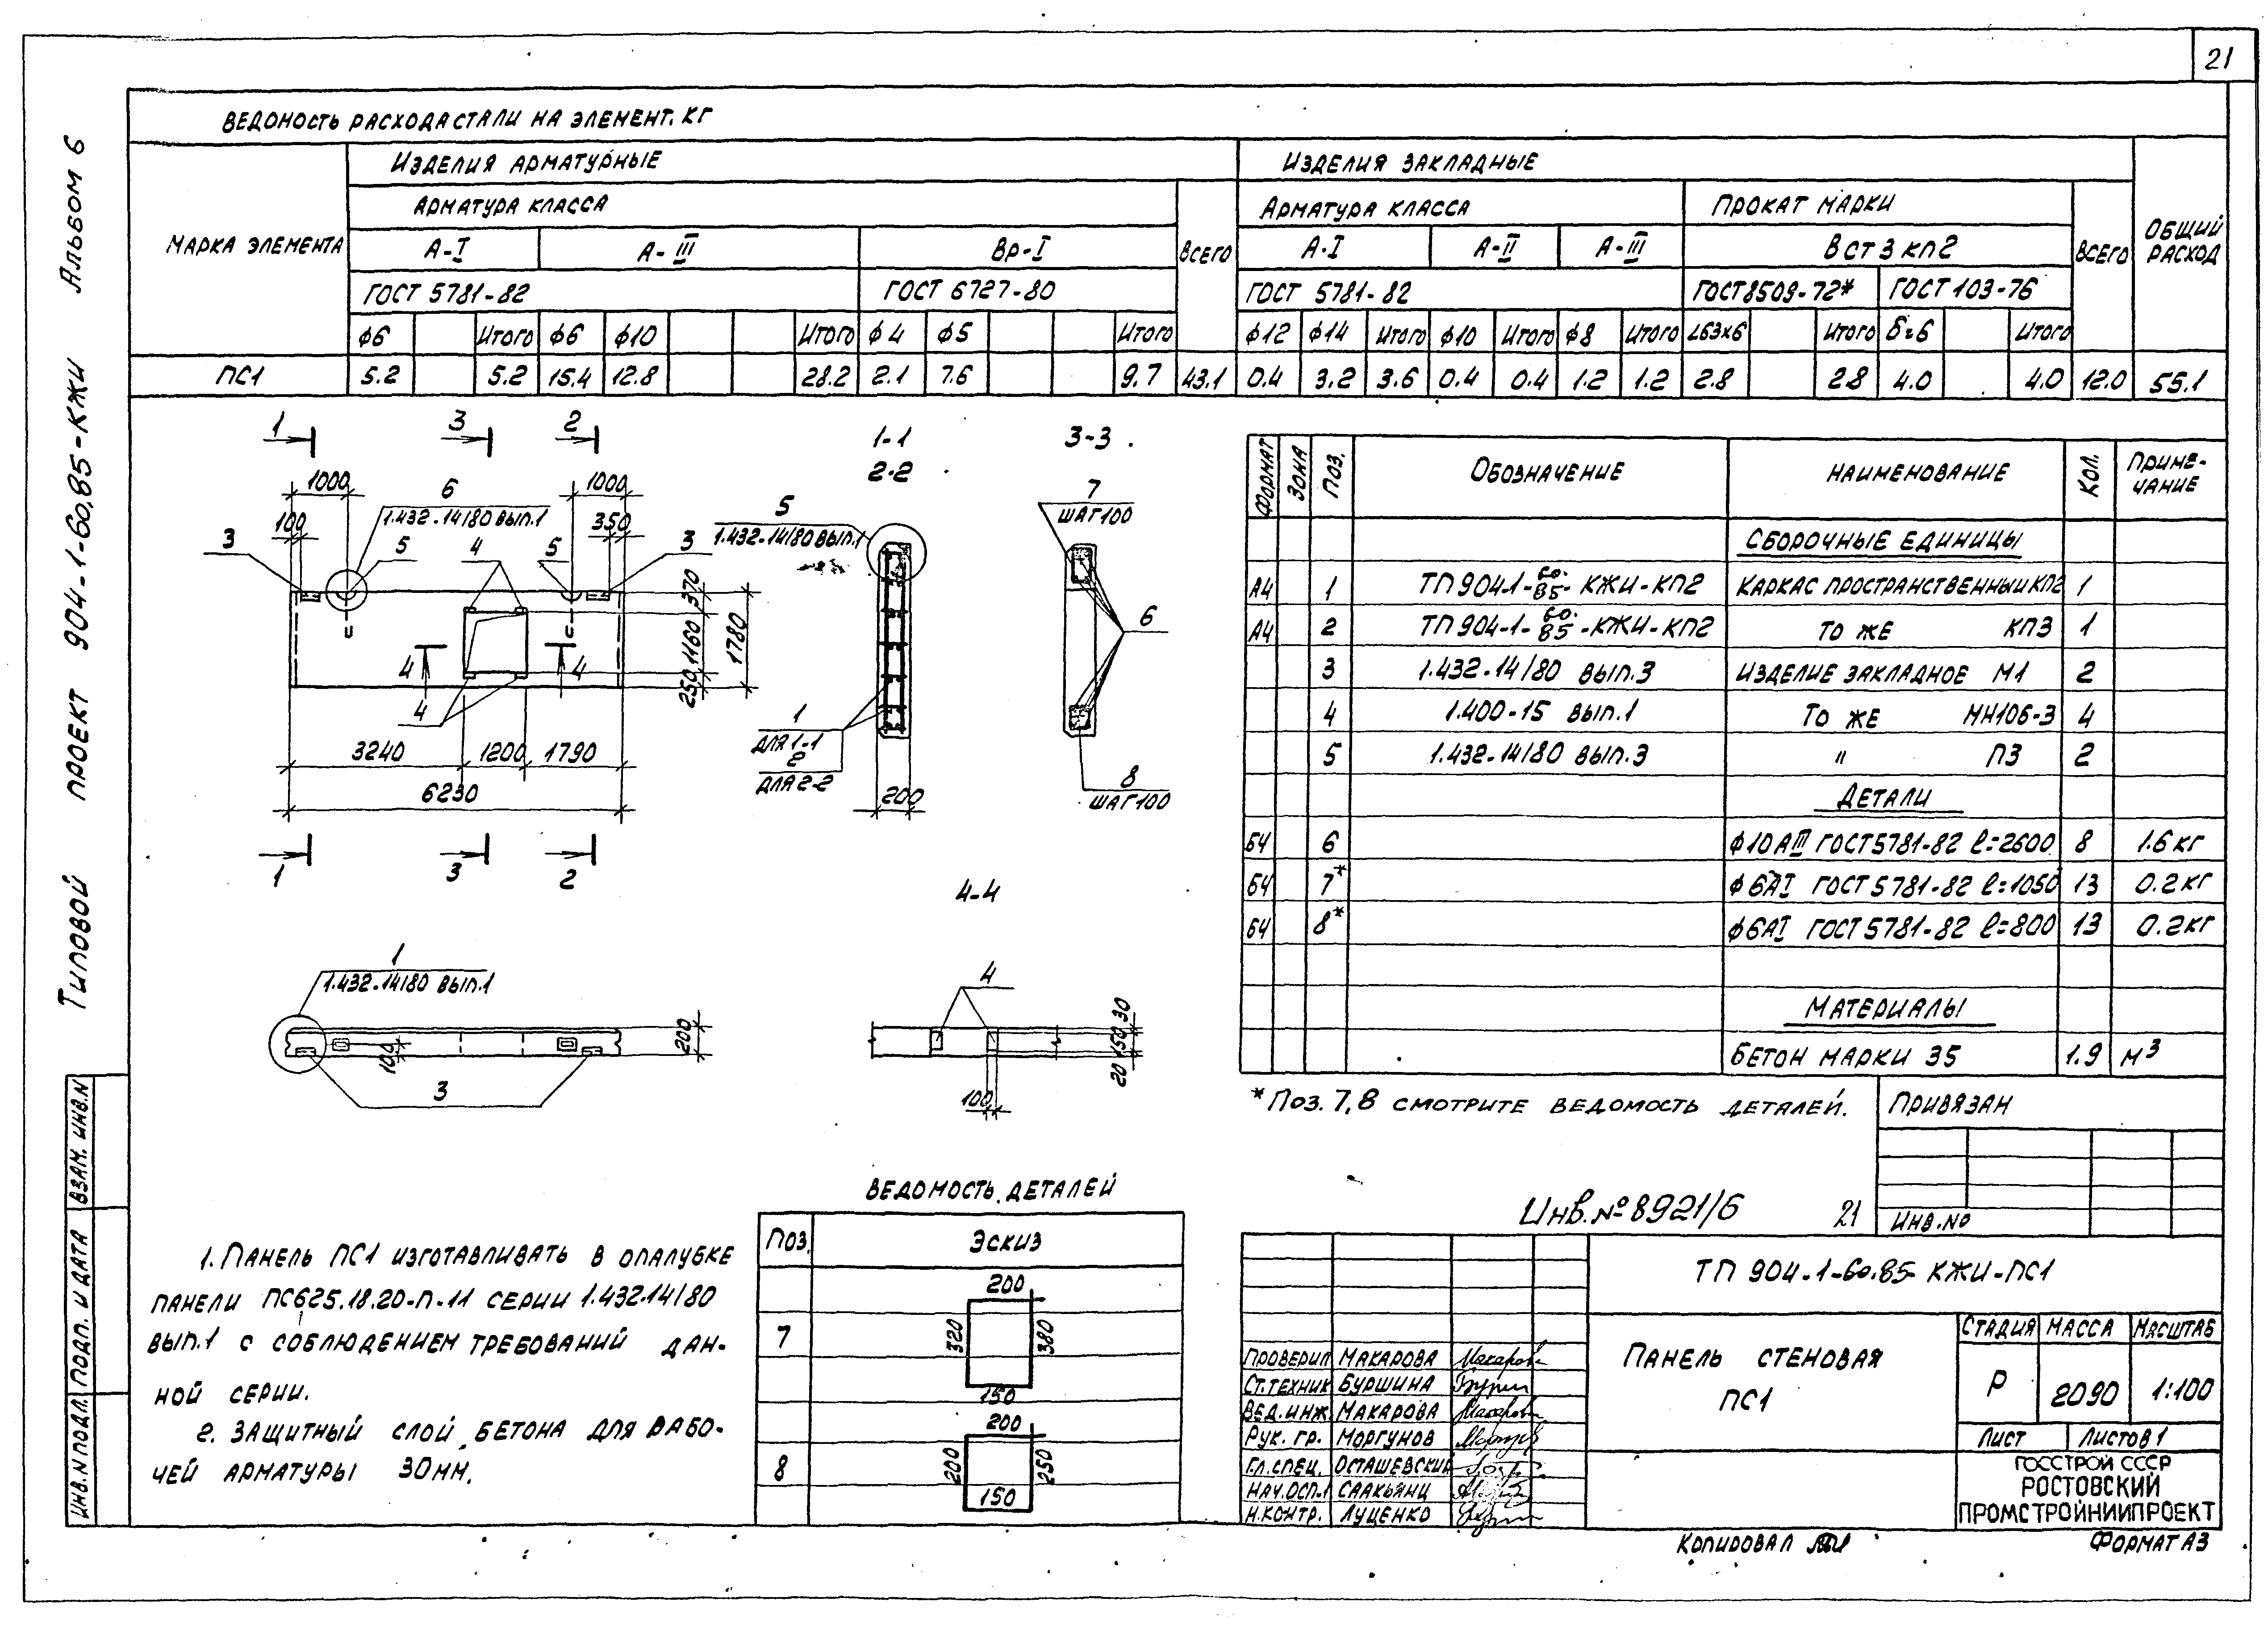 21
Типовой проект 904-1-60.85-КЖИ Альбом 6
Ведомость расхода стали на элемент. кг
Марка элемента
Изделия арматурные
Изделия закладные
Общий расход
Арматура класса
Всего
Арматура класса
Прокат марки
Всего
А-I
А-III
Вр-I
А-I
А-II
А-III
Вст3кп2
ГОСТ 5781-82
ГОСТ 6727-80
ГОСТ 5781-82
ГОСТ 8509-72*
ГОСТ 103-76
ф6 Итого ф6 ф10 Итого ф4 ф5 Итого ф12 ф14 Итого ф10 Итого ф8 Итого L63x6 Итого б=6 Итого
ПС1 5.2 5.2 15.4 12.8 28.2 2.1 7.6 9.7 43.1 0.4 3.2 3.6 0.4 0.4 1.2 1.2 2.8 2.8 4.0 4.0 12.0 55.1
1 3 2
1000 6 1000
1.432-14/80 вып.1
100 350
3 5 4 5 3
370
1160
250
1780
4 4
4
3240 1200 1790
6230
1 3 2
1-1
2-2
5
1.432-14/80 вып.1
1
для 1-1
2
для 2-2
200
3-3
7
шаг 100
6
8
шаг 100
1
1.432-14/80 вып.1
100
200
3
4-4
4
30
150
20
100
Формат Зона Поз. Обозначение Наименование Кол. Примечание
Сборочные единицы
А4 1 ТП 904-1-60.85-КЖИ-КП2 Каркас пространственный КП2 1
А4 2 ТП 904-1-60.85-КЖИ-КП2 То же КП3 1
3 1.432-14/80 вып.3 Изделие закладное М1 2
4 1.400-15 вып.1 То же МН106-3 4
5 1.432-14/80 вып.3 " П3 2
Детали
БЧ 6 ф10АIII ГОСТ 5781-82 ℓ=2600 8 1.6 кг
БЧ 7* ф6АI ГОСТ 5781-82 ℓ=1050 13 0.2 кг
БЧ 8* ф6АI ГОСТ 5781-82 ℓ=800 13 0.2 кг
Материалы
Бетон марки 35 1.9 м³
* Поз. 7, 8 смотрите ведомость деталей.
Привязан
Инв.№
Инв.№ 8921/6 21
1. Панель ПС1 изготавливать в опалубке
панели ПС625.18.20-П-11 серии 1.432-14/80
вып.1 с соблюдением требований дан-
ной серии.
2. Защитный слой бетона для рабо-
чей арматуры 30мм.
Ведомость деталей
Поз. Эскиз
7
200
320 380
150
8
200
200 250
150
ТП 904-1-60.85 КЖИ-ПС1
Панель стеновая
ПС1
Стадия Масса Масштаб
Р 2090 1:100
Лист Листов 1
Госстрой СССР
Ростовский
Промстройниипроект
Проверил Макарова
Ст.техник Буршина
Вед.инж. Макарова
Рук. гр. Моргунов
Гл.спец. Осташевский
Нач.осп-1 Саакьянц
Н.контр. Луценко
Инв.№подл. Подп. и дата Взам. инв.№
Копировал
Формат А3